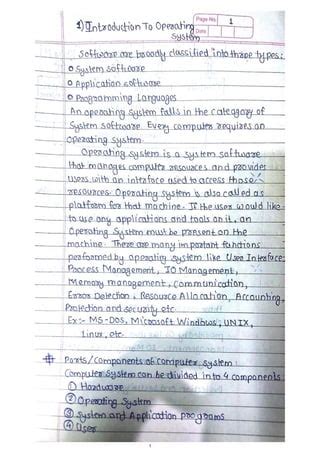 Page No. 1
Date
1) Introduction To Operating
System
Software are broadly classified into three types:
o System software
o Application software
o Programming Languages
An operating system falls in the categary of
System software. Every computer requires an
operating system.
Operating system is a system software
that manages computer resources and provides
users with an interface used to access those
resources. Operating system is also called as
platform for that machine. If the user would like
to use any applications and tools on it, an
Operating System must be present on the
machine. There are many important functions
performed by operating system like User Interface,
Process Management, IO Management,
Memory management, Communication,
Error Detection, Resource Allocation, Accounting,
Protection and security etc
Ex:- MS-DOS, Microsoft Windows, UNIX,
Linux, etc.
# Parts/Components of computer system:
Computer System can be divided into 4 components
① Hardware
② Operating System
③ System and Application programs
④ User
1